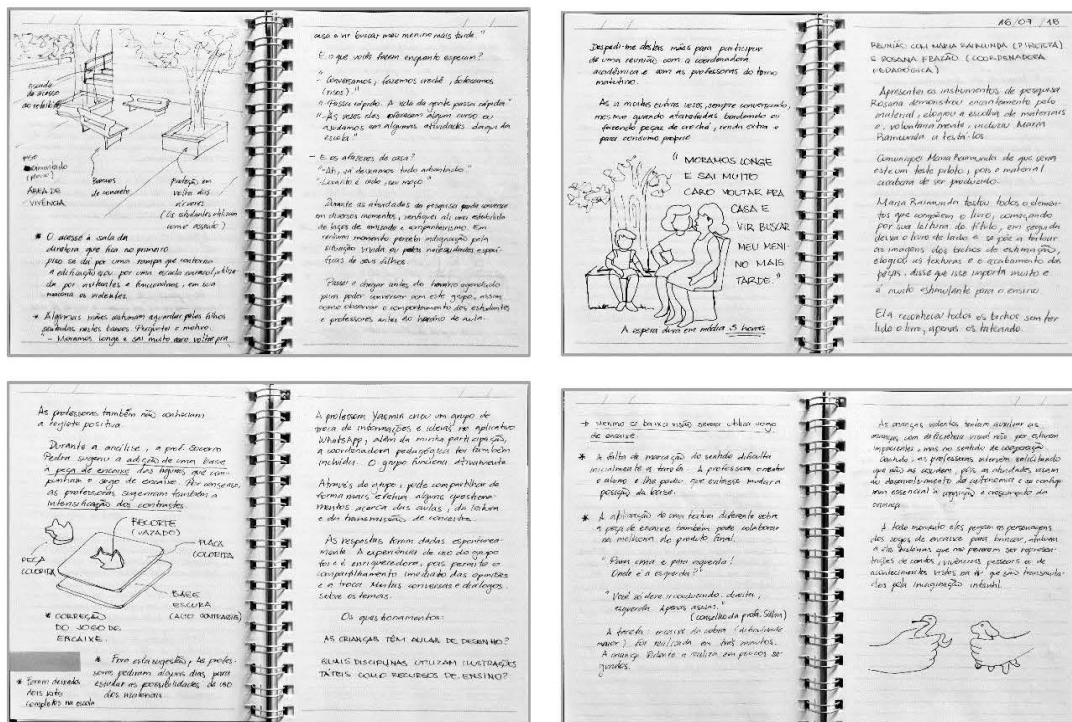 casa e vir buscar meu menino mais tarde."
E o que vocês fazem enquanto esperam?
"- Conversamos, fazemos crochê, fofocamos
(risos)."
"- Passa rápido. A vida da gente passa rápido"
"- Às vezes eles oferecem algum curso ou
ajudamos em algumas atividades daqui da
escola"
- E os afazeres de casa?
"- Ah, já deixamos tudo adiantado."
de acesso
ÁREA DE
VIVÊNCIA
Bancos
de concreto
Proteção em
volta das
árvores
(Os estudantes utilizam
como assento)
* O acesso à sala da
diretora que fica no primeiro
piso se dá por uma rampa que contorna
a edificação e/ou por uma escada
da por visitantes e funcionários, em sua
maioria os videntes.
* Algumas mães costumam aguardar pelos filhos
sentadas nestes bancos. Perguntei o motivo.
- Moramos longe e sai muito caro voltar pra
Durante as atividades da pesquisa pude conversar
em diversos momentos, verifiquei ali uma
de laços de amizade e companheirismo. Em
nenhum momento percebi indignação pela
situação vivida ou pelas necessidades especí-
ficas de seus filhos.
Passei a chegar antes do horário agendado
para poder conversar com este grupo, assim
como observar o comportamento dos estudantes
e professores antes do horário de aula.
Despedi-me destas mães para participar
de uma reunião com a coordenadora
acadêmica e com as professoras do turno
matutino.
As vi muitas outras vezes, sempre conversando,
mesmo quando atarefadas bordando ou
fazendo peças de crochê, renda extra e
para consumo próprio
" MORAMOS LONGE
E SAI MUITO
CARO VOLTAR PRA
CASA E
VIR BUSCAR
MEU MENI-
NO MAIS
TARDE."
A espera dura em média 5 horas
16/07/18
REUNIÃO COM MARIA RAIMUNDA (DIRETORA)
E ROSANA FRAZÃO (COORDENADORA
PEDAGÓGICA)
Apresentei os instrumentos de pesquisa
Rosana demonstrou encantamento pelo
material, elogiou a escolha de materiais
e, voluntariamente, incluiu Maria
Raimunda a testá-los.
Comuniquei Maria Raimunda de que seria
este um teste piloto, pois o material
acabara de ser produzido.
Maria Raimunda testou todos os elemen-
tos que compõem o livro, começando
por sua leitura do título, em seguida
deixa o livro de lado e se põe a tatear
as imagens dos bichos de estimação,
elogiou as texturas e o acabamento das
peças, disse que isso importa muito e
é muito estimulante para o ensino.
Ela reconheceu todos os bichos sem ter
lido o livro, apenas os tateando.
As professoras também não conheciam
a reglete positiva.
Durante a análise, a prof. Socorro
Pedra sugeriu a adição de uma base
a peça de encaixe das figuras que com-
punham o jogo de encaixe. Por consenso,
as professoras sugeriram também a
intensificação dos contrastes.
RECORTE
(VAZADO)
PLACA
COLORIDA
PEÇA
COLORIDA
BASE
ESCURA
(ALTO CONTRASTE)
* CORREÇÃO
DO JOGO DE
ENCAIXE.
* Fora esta sugestão, as profes-
soras pediram alguns dias para
estudar as possibilidades de uso
dos materiais.
* Foram deixados
dois kits
completos na escola
A professora Yasmin criou um grupo de
troca de informações e ideias no aplicativo
WhatsApp, além da minha participação,
a coordenadora pedagógica foi também
incluída. O grupo funciona ativamente.
Através do grupo, pude compartilhar de
forma mais efetiva alguns questiona-
mentos acerca das aulas, da leitura
e da transmissão de conceitos.
As respostas foram dadas espontanea-
mente. A experiência de uso do grupo
foi e é enriquecedora, pois permite o
compartilhamento imediato das opiniões
e a troca. Muitas conversas e diálogos
sobre os temas.
Os questionamentos:
AS CRIANÇAS TÊM AULAS DE DESENHO?
QUAIS DISCIPLINAS UTILIZAM ILUSTRAÇÕES
TÁTEIS COMO RECURSOS DE ENSINO?
→ Mesmo os baixa visão sentem utilizar o jogo
de encaixe.
* A falta de marcação do sentido dificulta
inicialmente a tarefa. A professora orientou
o aluno e lhe pediu que evitasse mudar a
posição da base.
* A aplicação de uma textura diferente sobre
a peça de encaixe também pode colaborar
na melhoria do produto final.
"Para cima e para esquerda!
Onde é a esquerda?"
direita,
esquerda. Apenas assim."
(conselho da profa. Sílvia)
A tarefa: encaixe da cobra (dificuldade
maior) foi realizada em três minutos.
A criança vidente a realiza em poucos se-
gundos.
As crianças videntes tentam auxiliar as
crianças com deficiência visual não por estarem
impacientes, mas no sentido de cooperação
Contudo, as professoras intervêm solicitando
que não as ajudem, pois as atividades visam
ao desenvolvimento da autonomia e se config
ram essencial à cognição e crescimento da
criança.
A todo momento eles pegam os personagens
dos jogos de encaixe para brincar, atribuem
a eles histórias que me parecem ser represen-
trações de contos, vivências pessoais ou de
acontecimentos vistos na tv que são transmiti-
dos pela imaginação infantil.